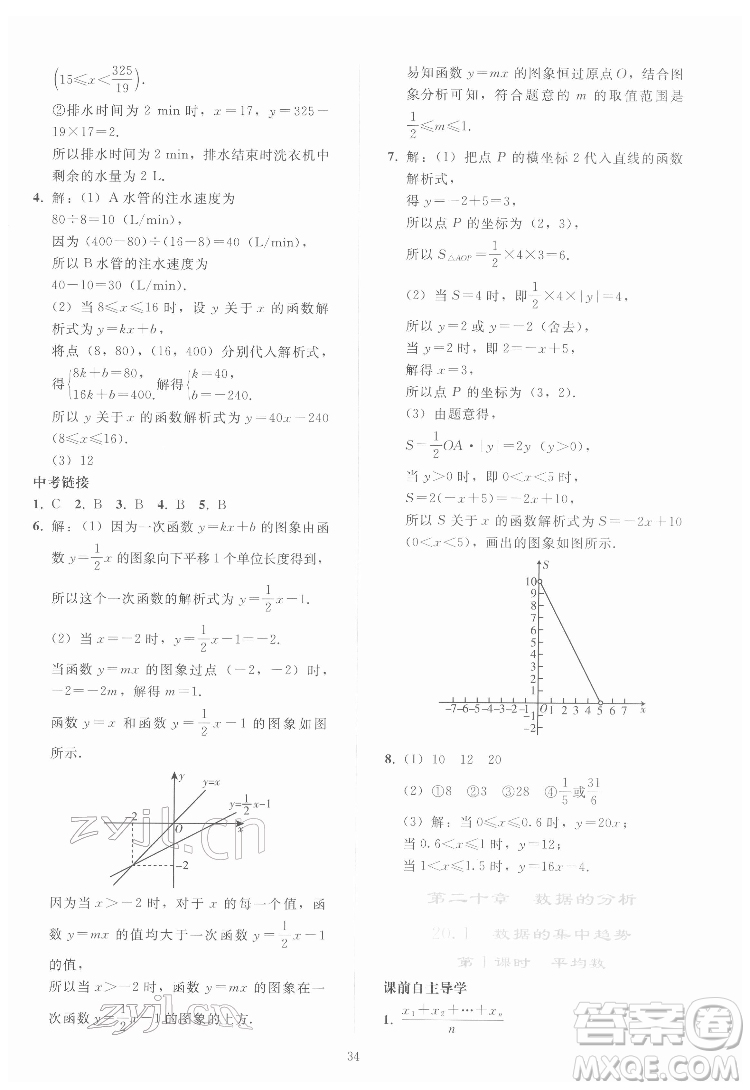 (15≤x<325/19).
②排水时间为 2 min 时，x＝17，y＝325－
19×17＝2.
所以排水时间为 2 min，排水结束时洗衣机中
剩余的水量为 2 L.
4. 解：(1) A 水管的注水速度为
80÷8＝10（L/min）
因为(400－80)÷(16－8)＝40（L/min）
所以 B 水管的注水速度为
40－10＝30（L/min）
(2) 当 8≤x≤16 时，设 y 关于 x 的函数解
析式为 y＝kx＋b，
将点（8，80），（16，400）分别代入解析式，
得{8k＋b＝80，16k＋b＝400. 解得{k＝40，b＝－240.
所以 y 关于 x 的函数解析式为 y＝40x－240
(8≤x≤16).
(3) 12
中考链接
1. C 2. B 3. B 4. B 5. B
6. 解：(1) 因为一次函数 y＝kx＋b 的图象由函
数 y＝1/2x 的图象向下平移 1 个单位长度得到，
所以这个一次函数的解析式为 y＝1/2x－1.
(2) 当 x＝－2 时，y＝1/2x－1＝－2.
当函数 y＝mx 的图象过点（－2，－2）时，
－2＝－2m，解得 m＝1.
函数 y＝x 和函数 y＝1/2x－1 的图象如图
所示.
y
y=x
y=1/2x－1
－2
O
x
－2
因为当 x＞－2 时，对于 x 的每一个值，函
数 y＝mx 的值均大于一次函数 y＝kx＋b
的值，
所以当 x＞－2 时，函数 y＝mx 的图象在一
次函数 y＝1/2x－1 的图象的上方.
易知函数 y＝mx 的图象恒过原点 O，结合图
象分析可知，符合题意的 m 的取值范围是
1/2≤m≤1.
7. 解：(1) 把点 P 的横坐标 2 代入直线的函数
解析式，
得 y＝－2＋5＝3，
所以点 P 的坐标为（2，3），
所以 S△AOP＝1/2×4×3＝6.
(2) 当 S＝4 时，即1/2×4×|y|＝4，
所以 y＝2 或 y＝－2（舍去），
当 y＝2 时，即－x＋5＝2，
解得 x＝3，
所以点 P 的坐标为（3，2）
(3) 由题意得，
S＝1/2OA·|y|＝2y（y＞0），
当 y＝－x＋5 时，
S＝2(－x＋5)＝－2x＋10
所以 S 关于 x 的函数解析式为 S＝－2x＋10
(0＜x＜5)，画出的图象如图所示.
S
10
9
8
7
6
5
4
3
2
1
－7－6－5－4－3－2－1 O 1 2 3 4 5 6 7 x
－1
－2
8. (1) 10 12 20
(2) ①8 ②3 ③2 ④1/5或31/6
(3) 解：当 0≤x≤0.6 时，y＝20x；
当 0.6＜x≤1 时，y＝12；
当 1＜x≤1.5 时，y＝16x－4.
第二十章 数据的分析
20.1 数据的集中趋势
第1课时 平均数
课前自主导学
1. (x₁＋x₂＋…＋xₙ)/n
34
zyjl.cn
zyjl.cn
答案卷